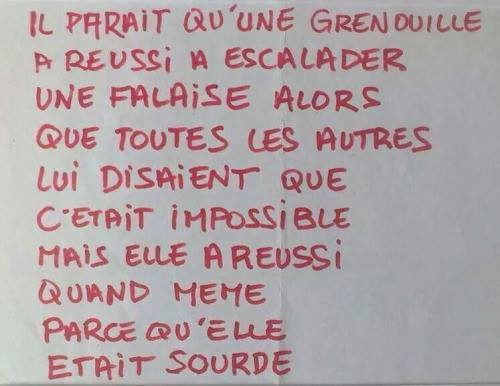 IL PARAIT QU'UNE GRENOUILLE
A REUSSI A ESCALADER
UNE FALAISE ALORS
QUE TOUTES LES AUTRES
LUI DISAIENT QUE
C'ETAIT IMPOSSIBLE
MAIS ELLE A REUSSI
QUAND MEME
PARCE QU'ELLE
ETAIT SOURDE